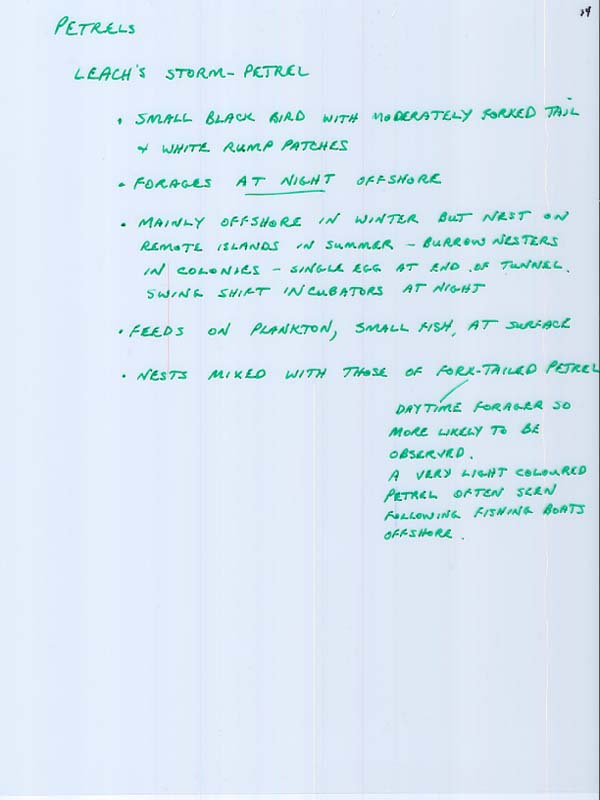 14
PETRELS
LEACH'S STORM-PETREL
• SMALL BLACK BIRD WITH MODERATELY FORKED TAIL
+ WHITE RUMP PATCHES
• FORAGES AT NIGHT OFFSHORE
• MAINLY OFFSHORE IN WINTER BUT NEST ON
REMOTE ISLANDS IN SUMMER - BURROW NESTERS
IN COLONIES - SINGLE EGG AT END OF TUNNEL.
SWING SHIFT INCUBATORS AT NIGHT
• FEEDS ON PLANKTON, SMALL FISH, AT SURFACE
• NESTS MIXED WITH THOSE OF FORK-TAILED PETREL
DAYTIME FORAGER SO
MORE LIKELY TO BE
OBSERVED.
A VERY LIGHT COLOURED
PETREL OFTEN SEEN
FOLLOWING FISHING BOATS
OFFSHORE.